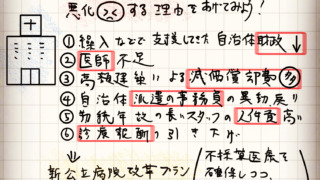 悪化する理由をあげてみよう!
① 繰入などで支援してきた自治体財政↓
② 医師不足
③ 高額建築による減価償却費多
④ 自治体派遣の事務員の異動度!!
⑤ 勤続年数の長いスタッフの人件費高!!
⑥ 診療報酬の引き下げ
↓
新公立病院改革プラン
不採算医療を
確保しつつ、